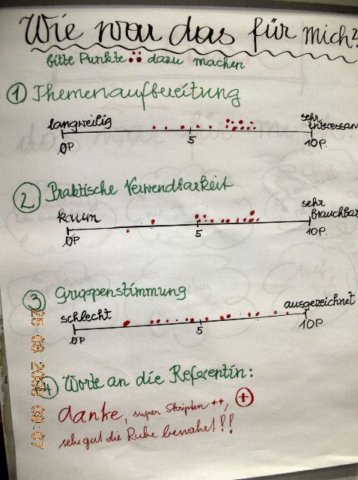 Wie war das für mich?
bitte Punkte dazu machen
1 Themenaufbereitung
langweilig
sehr interessant
0P
5
10P.
2. Praktische Verwendbarkeit
kaum
sehr brauchbar
0P
5
10P.
3 Gruppenstimmung
schlecht
ausgezeichnet
0P
5
10P.
4 Worte an die Referentin:
danke, super Skripten ++, +
sehr gut die Ruhe bewahrt!!